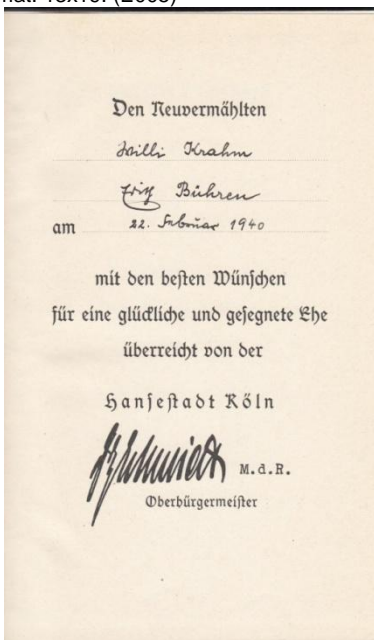 Den Neuvermählten
Willi Krahm
Bühren
am 22. Februar 1940
mit den besten Wünschen
für eine glückliche und gesegnete Ehe
überreicht von der
Hansestadt Köln
Schmidt M.d.R.
Oberbürgermeister